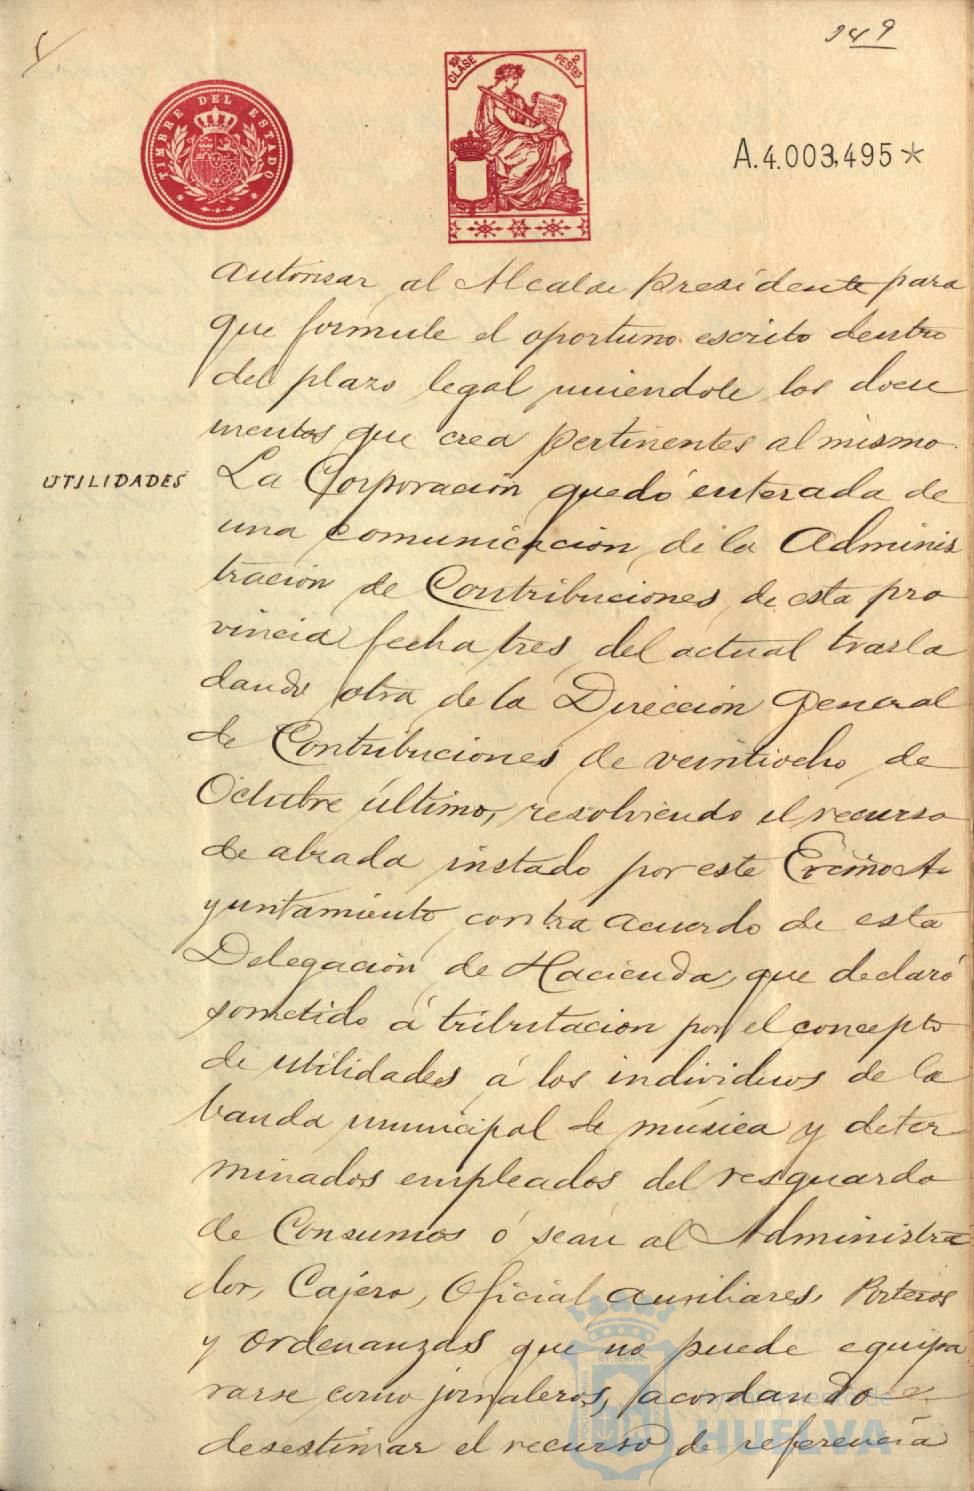 249
TIMBRE DEL ESTADO
10ª CLASE
2 PESTAS
A.4.003,495*
autorisar al Alcalde Presidente para
que formule el oportuno escrito dentro
del plazo legal uniendole los docu
mentos que crea pertinentes al mismo.
UTILIDADES
La Corporación quedó enterada de
una comunicacion de la Adminis
tración de Contribuciones de esta pro
vincia fecha tres del actual trasla
dando otra de la Dirección General
de Contribuciones de veintiocho de
Octubre último, resolviendo el recurso
de alzada instado por este Excmo A-
yuntamiento contra acuerdo de esta
Delegación de Hacienda, que declaró
sometido á tributacion por el concepto
de utilidades á los individuos de la
banda municipal de música y deter
minados empleados del resguardo
de Consumos ó sean al Administra
dor, Cajero, Oficial Auxiliares, Porteros
y ordenanzas que no puede equipa
rarse como jornaleros, acordando
desestimar el recurso de referencia
Ayuntamiento de
HUELVA